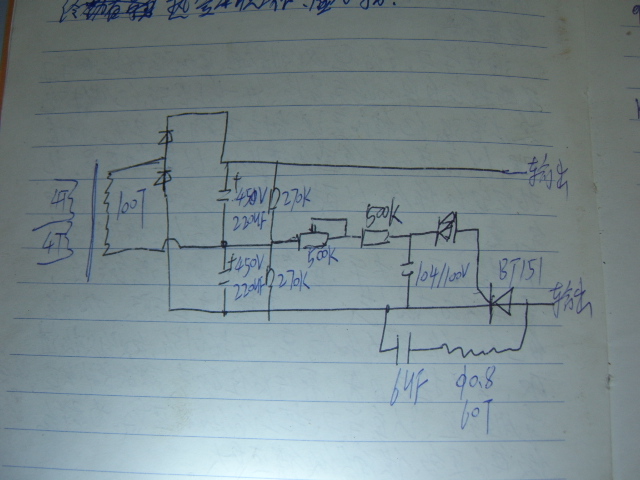 输出
4T
100T
+
450V
220uF
270K
500K
4T
500K
+
450V
220uF
270K
104/100V
BT151
输出
6UF
φ0.8
60T